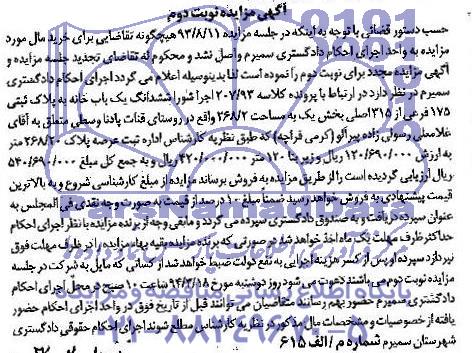 آگهی مزایده نوبت دوم
حسب دستور قضائی با توجه به اینکه در جلسه مزایده ۹۳/۸/۱۱ هیچگونه تقاضایی برای خرید مال مورد
مزایده به واحد اجرای احکام دادگستری سمیرم واصل نشد و محکوم له تقاضای تجدید جلسه مزایده و
آگهی مزایده مجدد برای نوبت دوم را نموده است لذا بدینوسیله اعلام می گردد اجرای احکام دادگستری
سمیرم در نظر دارد در ارتباط با پرونده کلاسه ۲۰۷/۹۳ اجرا شورا ششدانگ یک باب خانه به پلاک ثبتی
۱۷۵ فرعی از ۳۱۵ اصلی بخش یک به مساحت ۲۶۸/۲ واقع در روستای قنات پادنا وسطی متعلق به آقای
غلامعلی رسولی زاده پیرآلو (کرمی قراچه) که طبق نظریه کارشناس اداره ثبت عرصه پلاک ۲۶۸/۲۰ متر
به ارزش ۱۲۰/۶۹۰/۰۰۰ ریال و زیربنا ۱۲۰ متر ۴۲۰/۰۰۰/۰۰۰ ریال و به جمع کل مبلغ ۵۴۰/۶۹۰/۰۰۰
ریال ارزیابی گردیده است را از طریق مزایده به فروش برساند مزایده از مبلغ کارشناسی شروع و به بالاترین
قیمت پیشنهادی به فروش خواهد رسید ضمناً مبلغ ۱۰ درصد از قیمت به صورت وجه نقد فی المجلس به
عنوان سپرده دریافت و به صندوق دادگستری سپرده می گردد و مابقی وجه از برنده مزایده با نظر اجرای احکام
حداکثر ظرف مهلت یک ماه اخذ خواهد شد در صورتی که برنده مزایده بقیه بهاء مزایده را در ظرف مهلت فوق
نپردازد سپرده او پس از کسر هزینه اجرایی به نفع دولت ضبط خواهد شد از کسانی که مایل به شرکت در جلسه
مزایده نوبت دوم می باشند دعوت می شود روز دوشنبه مورخ ۹۴/۲/۱۸ ساعت ۱۰ صبح در محل اجرای احکام
دادگستری سمیرم حضور بهم رسانند متقاضیان می توانند قبل از تاریخ فوق در واحد اجرای احکام حضور
یافته از خصوصیات و مشخصات مال مذکور در نظریه کارشناس مطلع شوند اجرای احکام حقوقی دادگستری
شهرستان سمیرم شماره م/الف ۶۱۵
ParsNamadData